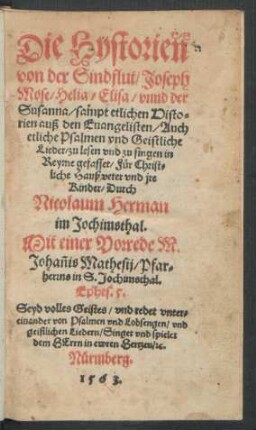 Die Hystorien
von der Sindflut / Joseph
Mose / Helia / Elisa / vnnd der
Susanna / sampt etlichen Histo-
rien auß den Euangelisten / Auch
etliche Psalmen vnd Geistliche
Lieder / zu lesen vnd zu singen in
Reyme gefasset / Für Christ-
liche Haußveter vnd jre
Kinder / Durch
Nicolaum Herman
im Jochimsthal.
Mit einer Vorrede M.
Johañis Mathesij / Pfar-
herrns in S. Jochimsthal.
Ephes. 5.
Seyd volles Geistes / vnd redet vnter-
einander von Psalmen vnd Lobsengen / vnd
geistlichen Liedern / Singet vnd spielet
dem HErrn in ewren Hertzen / ꝛc.
Nürmberg.
1563.